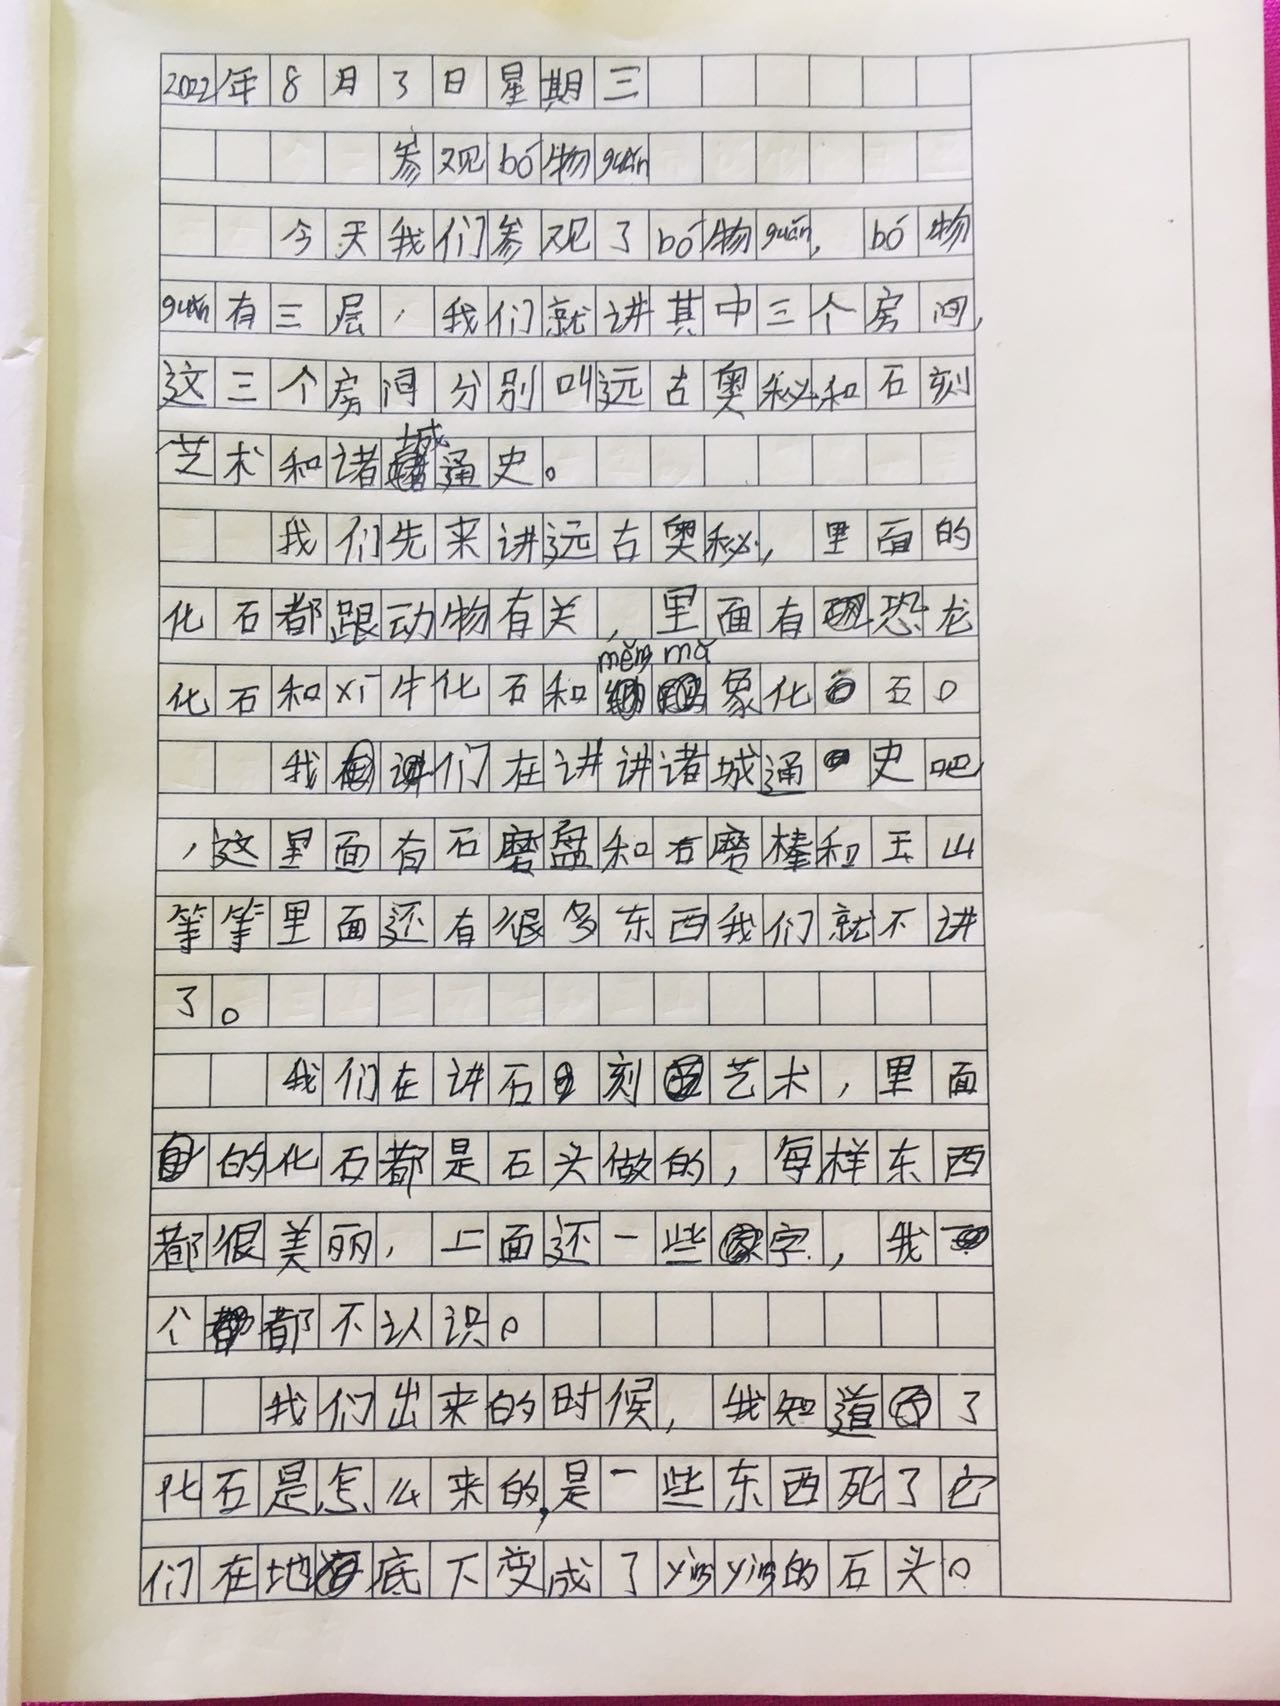 2022年8月3日星期三
参观bó物guǎn
今天我们参观了bó物guǎn,bó物
guǎn有三层,我们就讲其中三个房间,
这三个房间分别叫远古奥秘和石刻
艺术和诸城通史。
我们先来讲远古奥秘,里面的
化石都跟动物有关,里面有恐龙
化石和xī牛化石和měng mǎ象化石。
我们在讲讲诸城通史吧
,这里面有石磨盘和石磨棒和玉山
等等里面还有很多东西我们就不讲
了。
我们在讲石刻艺术,里面
的化石都是石头做的,每样东西
都很美丽,上面还一些字,我一
个都不认识。
我们出来的时候,我知道了
化石是怎么来的,是一些东西死了它
们在地底下变成了yìng yìng的石头。